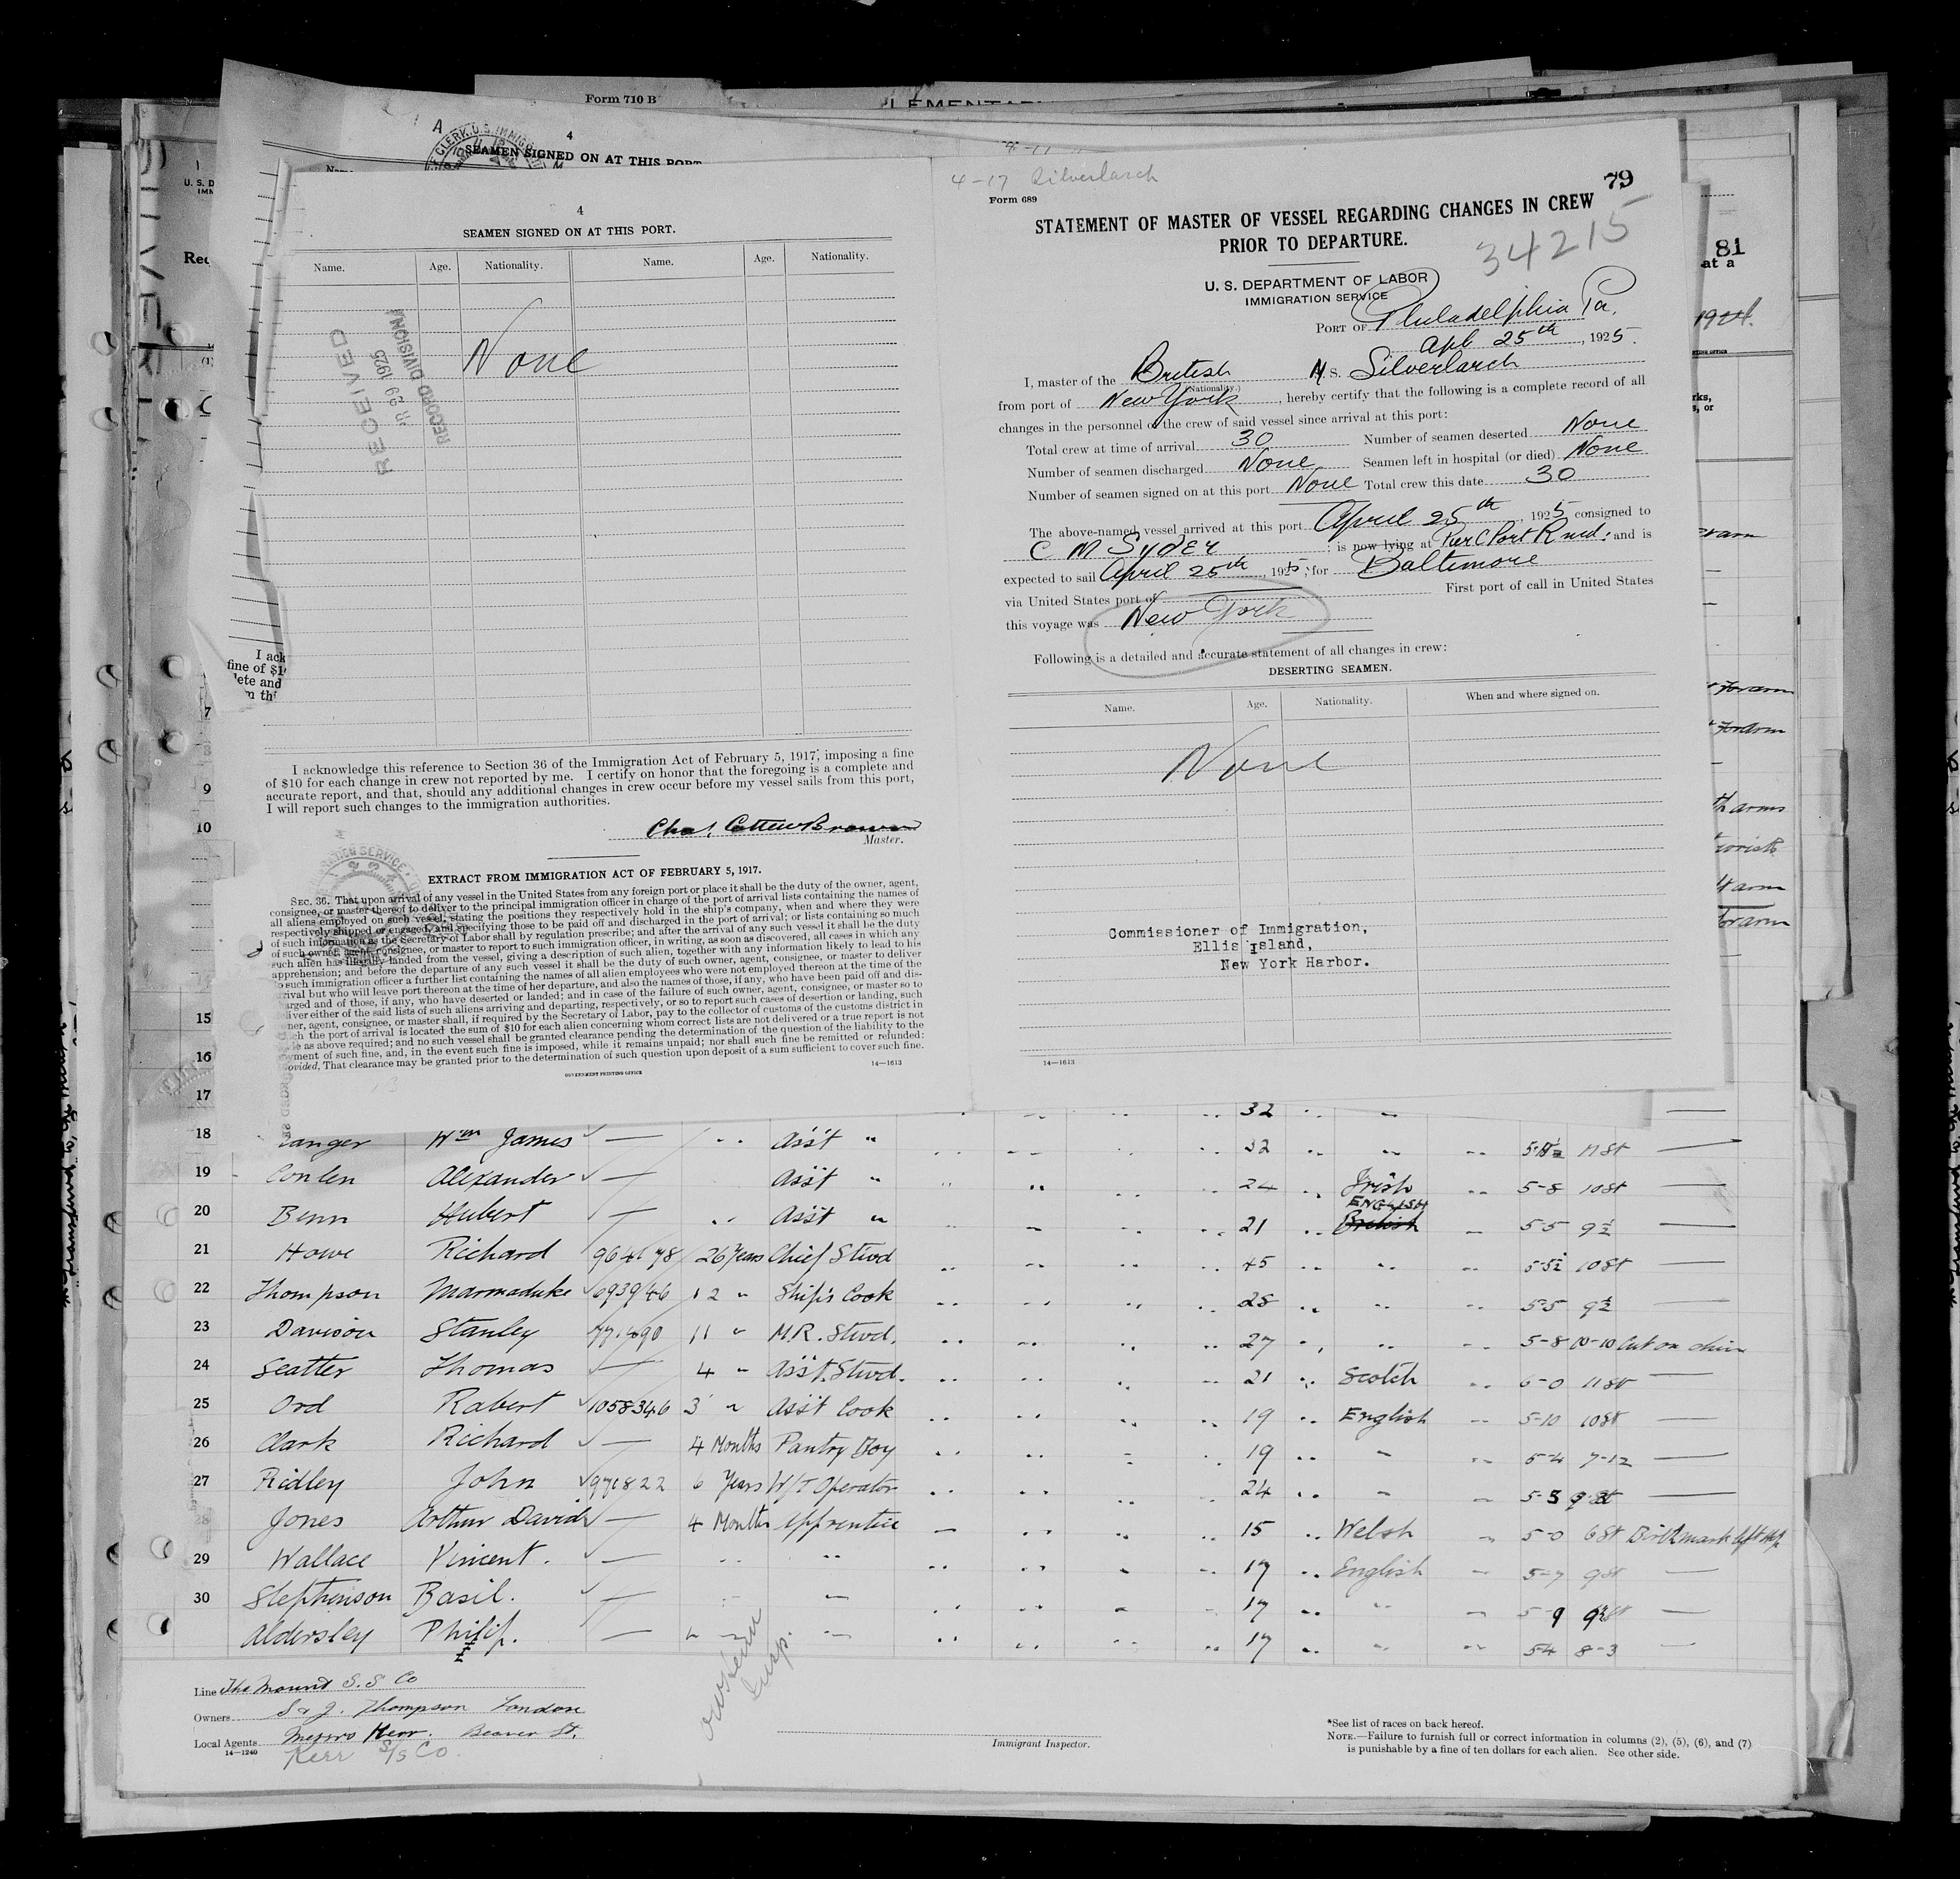 Form 710 B
4
SEAMEN SIGNED ON AT THIS PORT
4
SEAMEN SIGNED ON AT THIS PORT.
Name. Age. Nationality. Name. Age. Nationality.
None
RECEIVED
29 1925
RECORD DIVISION
I acknowledge this reference to Section 36 of the Immigration Act of February 5, 1917, imposing a fine
of $10 for each change in crew not reported by me. I certify on honor that the foregoing is a complete and
accurate report, and that, should any additional changes in crew occur before my vessel sails from this port,
I will report such changes to the immigration authorities.
Master.
EXTRACT FROM IMMIGRATION ACT OF FEBRUARY 5, 1917.
SEC. 36. That upon arrival of any vessel in the United States from any foreign port or place it shall be the duty of the owner, agent,
consignee, or master thereof to deliver to the principal immigration officer in charge of the port of arrival lists containing the names of
all aliens employed on such vessel, stating the positions they respectively hold in the ship's company, when and where they were
respectively shipped or engaged, and specifying those to be paid off and discharged in the port of arrival; or lists containing so much
of such information as the Secretary of Labor shall by regulation prescribe; and after the arrival of any such vessel it shall be the duty
of such owner, agent, consignee, or master to report to such immigration officer, in writing, as soon as discovered, all cases in which any
such alien has illegally landed from the vessel, giving a description of such alien, together with any information likely to lead to his
apprehension; and before the departure of any such vessel it shall be the duty of such owner, agent, consignee, or master to deliver
to such immigration officer a further list containing the names of all alien employees who were not employed thereon at the time of the
rival but who will leave port thereon at the time of her departure, and also the names of those, if any, who have been paid off and dis-
arged and of those, if any, who have deserted or landed; and in case of the failure of such owner, agent, consignee, or master so to
liver either of the said lists of such aliens arriving and departing, respectively, or so to report such cases of desertion or landing, such
ner, agent, consignee, or master shall, if required by the Secretary of Labor, pay to the collector of customs of the customs district in
ch the port of arrival is located the sum of $10 for each alien concerning whom correct lists are not delivered or a true report is not
e as above required; and no such vessel shall be granted clearance pending the determination of the question of the liability to the
yment of such fine, and, in the event such fine is imposed, while it remains unpaid; nor shall such fine be remitted or refunded:
ovided, That clearance may be granted prior to the determination of such question upon deposit of a sum sufficient to cover such fine.
GOVERNMENT PRINTING OFFICE
14—1613
4-17 Silverlarch
Form 689
79
STATEMENT OF MASTER OF VESSEL REGARDING CHANGES IN CREW
PRIOR TO DEPARTURE.
34215
U. S. DEPARTMENT OF LABOR
IMMIGRATION SERVICE
PORT OF Philadelphia Pa.
Apl 25th, 1925.
I, master of the British M.S. Silverlarch
(Nationality.)
from port of New York, hereby certify that the following is a complete record of all
changes in the personnel of the crew of said vessel since arrival at this port:
Total crew at time of arrival 30 Number of seamen deserted None
Number of seamen discharged None Seamen left in hospital (or died) None
Number of seamen signed on at this port None Total crew this date 30
The above-named vessel arrived at this port April 25th, 1925, consigned to
C M Syder; is now lying at Pier C Port Rmd; and is
expected to sail April 25th, 1925; for Baltimore
via United States port of First port of call in United States
this voyage was New York
Following is a detailed and accurate statement of all changes in crew:
DESERTING SEAMEN.
Name. Age. Nationality. When and where signed on.
None
Commissioner of Immigration,
Ellis Island,
New York Harbor.
14—1613
81
at a
I ack
fine of $1
lete and
7
9
10
15
16
17 32
18 anger Wm James — Ass't " 32 17 St —
19 Conlen Alexander — Ass't " 24 Irish 5-8 10 St —
20 Benn Hubert — Ass't " 21 ENGLISH British 5-5 9½ —
21 Howe Richard 964178 26 Years Chief Stwd 45 10 St —
22 Thompson Marmaduke 693946 12 " Ship's Cook 28 5-5 9½ —
23 Davison Stanley 771490 11 " M.R. Stwd. 27 5-8 10-10 Cut on chin
24 Seatter Thomas — 4 " Ass't. Stwd. 21 Scotch 6-0 11 St —
25 Ord Robert 1058346 3 " Ass't Cook 19 English 5-10 10 St —
26 Clark Richard — 4 Months Pantry Boy 19 " 5-4 7-12 —
27 Ridley John 971822 6 Years W/T Operator 24 " 5-5 —
28 Jones Arthur David — 4 Months Apprentice 15 Welsh 5-0 6 St Birthmark left
29 Wallace Vincent. — 17 English 5-7 9 St —
30 Stephenson Basil. — 17 " 5-9 —
Aldersley Philip. — 17 " 5-4 8-3 —
Line The Mount S.S Co
Owners S & J. Thompson London
Local Agents Messrs Kerr. Beaver St.
14—1240
Kerr S/S Co.
Insp.
Immigrant Inspector.
*See list of races on back hereof.
NOTE.—Failure to furnish full or correct information in columns (2), (5), (6), and (7)
is punishable by a fine of ten dollars for each alien. See other side.